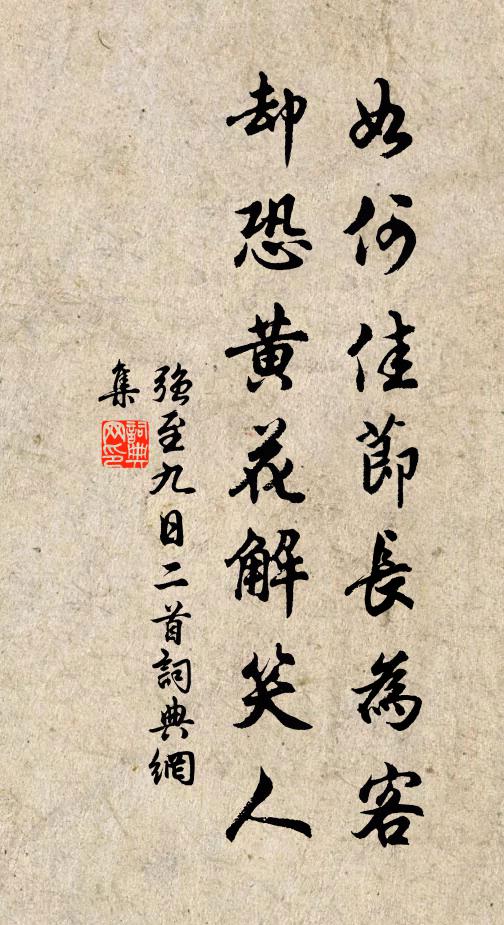 如何佳節長為客
却恐黄花解笑人
強至九日二首詞典網
集
詞典
网印